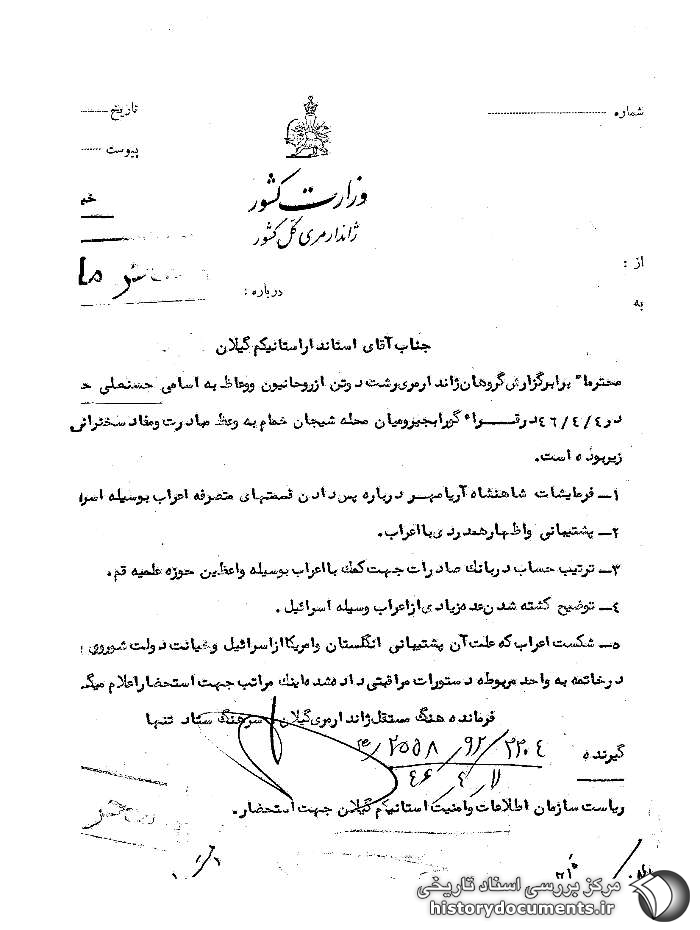 شماره
تاریخ
پیوست
وزارت کشور
ژاندارمری کل کشور
از :
درباره :
به
جناب آقای استاندار استانیکم گیلان
محترما" برابر گزارش گروهان ژاندارمری رشت دوتن از روحانیون ووعاظ به اسامی حسنعلی
در ٤٦/٤/٤ در قراء گورابجیر ومیان محله شیجان خمام به وعظ مبادرت ومفاد سخنرانی
زیربوده است.
۱- فرمایشات شاهنشاه آریامهر درباره پس دادن قسمتهای متصرفه اعراب بوسیله
۲- پشتیبانی واظهارهمدردی بااعراب.
۳- ترتیب حساب دربانک صادرات جهت کمک بااعراب بوسیله واعظین حوزه علمیه قم.
٤- توضیح کشته شدن عده زیادی ازاعراب وسیله اسرائیل.
٥- شکست اعراب که علت آن پشتیبانی انگلستان وامریکا ازاسرائیل وخیانت دولت شوروی
درخاتمه به واحد مربوطه دستورات مراقبتی داده شده اینک مراتب جهت استحضاراعلام
فرمانده هنگ مستقل ژاندارمری گیلان. سرهنگ ستاد تنها
گیرنده
٤٦/٤/١١
ریاست سازمان اطلاعات وامنیت استانیکم گیلان جهت استحضار.
مرکز بررسی اسناد تاریخی
historydocuments.ir